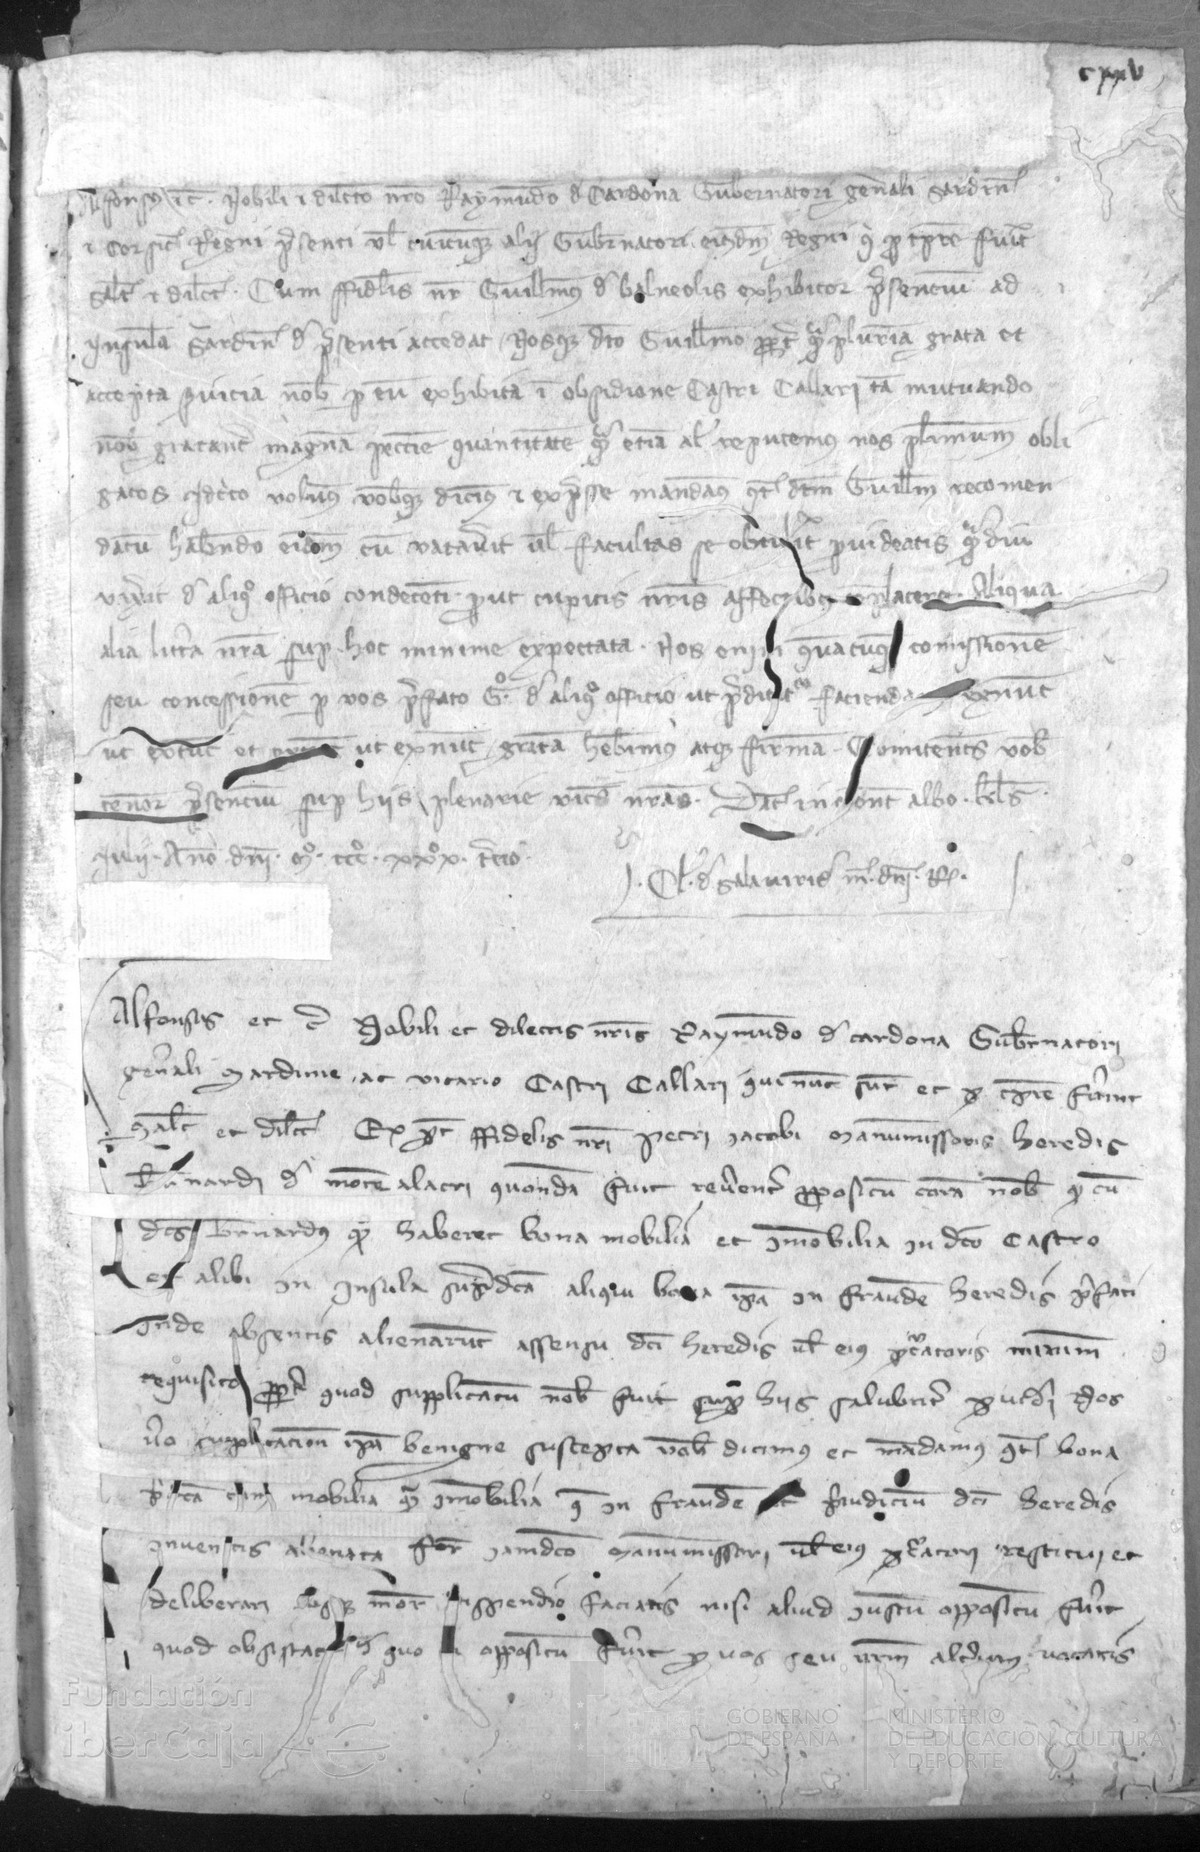 cxxv
Alfonsus etc. Nobili et dilecto nro Raymundo de Cardona Gubernatori generali Sardin
et Corsic Regni presenti vel cuicumque alii Gubernatori eiusdem Regni qui pro tempore fuerit
salt et dilect. Cum ffidelis nr Guillmus de balneolis exhibitor presencium ad
insulam Sardin de presenti accedat Nosque dicto Guillmo propter plurima grata et
accepta servicia nob per eum exhibita in obsidione Castri Callari tam mutuando
nob gratanter magnam peccunie quantitatem quam etiam al reputemus nos plurimum obli
gatos Idcirco volumus vobisque dicimus et expresse mandamus quatenus dictum Guillm recomen
datum habendo eidem cum vacaverit vel facultas se obtulerit provideatis quamdiu
vixerit de aliquo officio condecenti prout cupitis nris affectibus complacere. Aliqua
alia littera nra super hoc minime expectata. Nos enim quamcumque comissionem
seu concessionem per vos prefato G. de aliquo officio ut predicitur faciendam exnunc
ut extunc et extunc ut exnunc gratam habemus atque firmam. Comitentes vob
tenore presencium super hiis plenarie vices nras. Dat in monte albo kls
Julii Anno dni m ccc xx tercio
Cl. de salaviridi m. dni. R.
Alfonsus et c Nobili et dilectis nris Raymundo de cardona Gubernatori
generali Sardinie ac vicario Castri Callari qui nunc sunt et pro tempore fuerint
Salt et dilect Ex parte ffidelis nri petri jacobi manumissoris heredis
Bernardi de monte alacri quondam fuit reverenter propositum coram nob quod cum
dictus Bernardus haberet bona mobilia et Immobilia in dicto Castro
et alibi in insula supradicta aliqui bona ipsa in fraudem heredis prefati
Inde absentis alienarunt assensu dicti heredis vel eius procuratoris minime
requisito propter quod supplicatum nob fuit super hiis salubriter provideri Nos
vero supplicacionem ipsam benigne suscepta vob dicimus et mandamus quatenus bona
predicta tam mobilia quam immobilia que in fraudem et preiudicium dicti heredis
inveneritis alienata fore iamdicto manumissori vel eius procuratori restitui et
deliberari absque more dispendio faciatis nisi aliud iustum oppositum fuerit
quod obsistat Si quo oppositum fuerit per vos seu vrm alterum vocatis
Fundación
iberCaja
GOBIERNO
DE ESPAÑA
MINISTERIO
DE EDUCACIÓN, CULTURA
Y DEPORTE